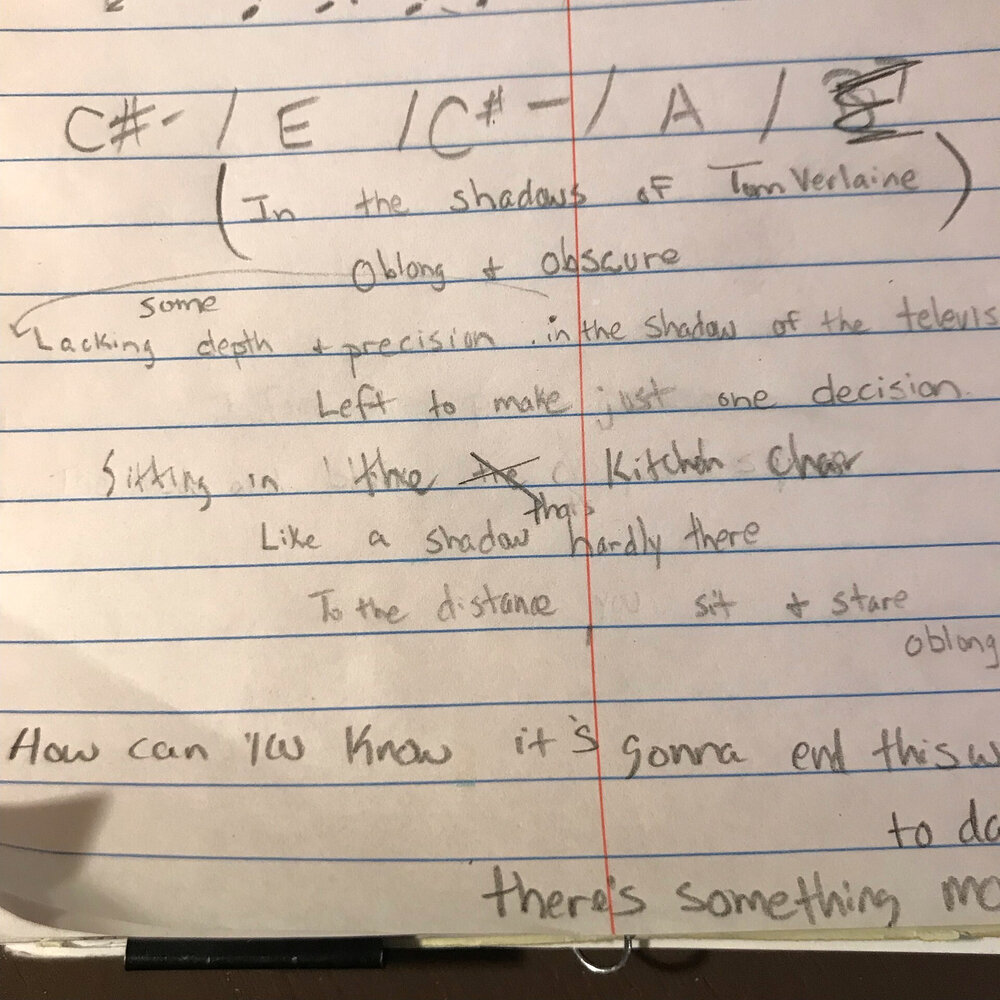 C#- / E / C#- / A /
(In the shadows of Tom Verlaine)
Oblong + obscure
some
Lacking depth + precision in the shadow of the televis
Left to make just one decision.
Sitting in the Kitchen Chair
that's
Like a shadow hardly there
To the distance you sit + stare
oblong
How can you know it's gonna end this w
to da
there's something mo